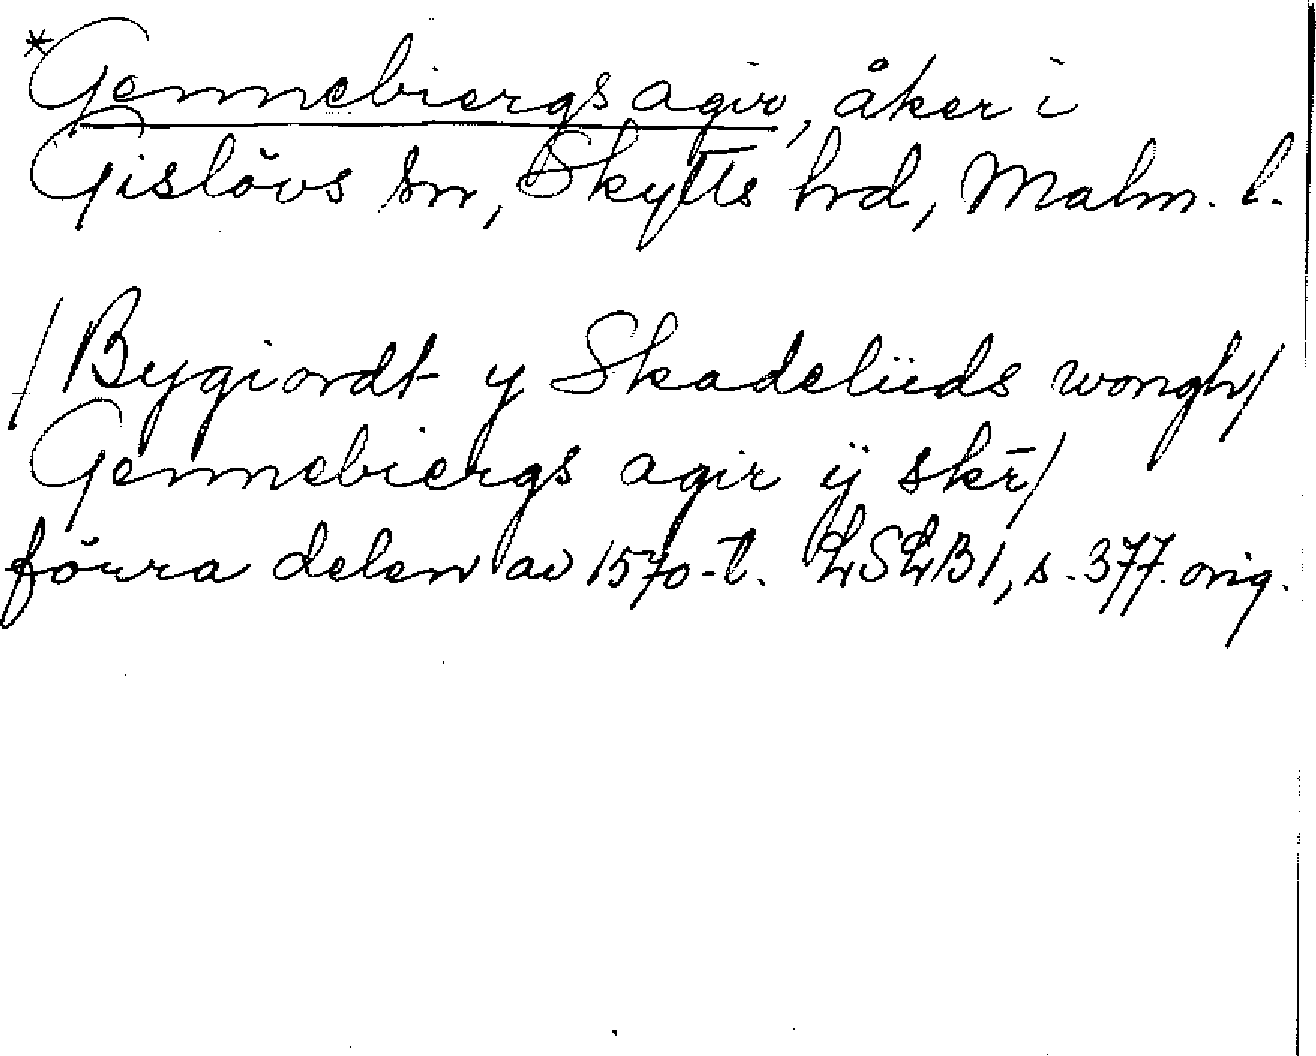 *Gennebiergs agir, åker i
Gislövs sn, Skytts hrd, Malm. l.
/Bygiordt y Skadelüds wongh/
Gennebiergs agir ÿ skr̄/
förra delen av 1570-t. LSLB1, s. 377. orig.